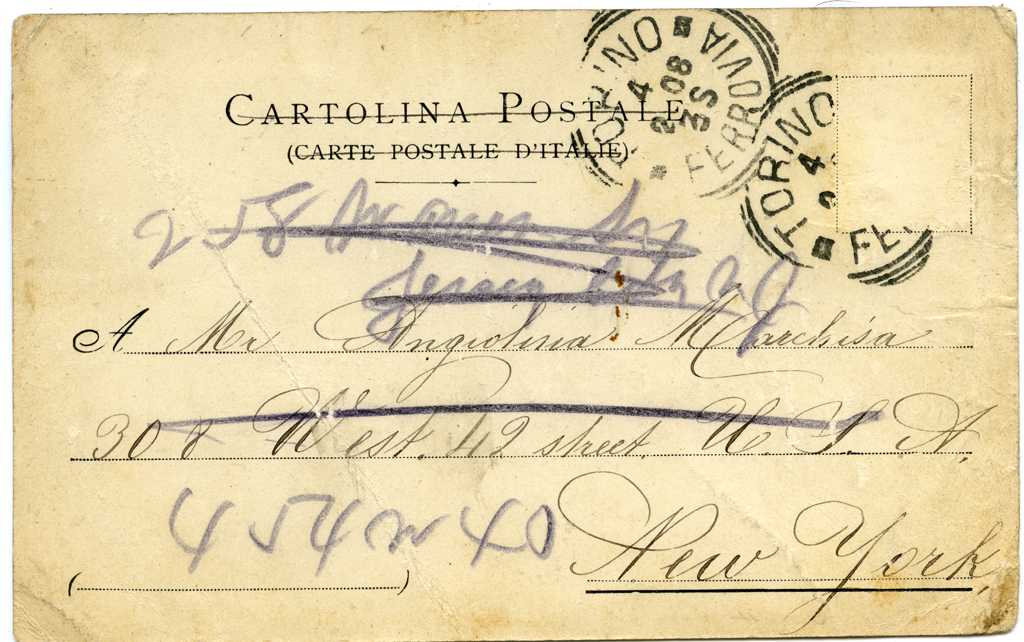 CARTOLINA POSTALE
(CARTE POSTALE D'ITALIE)
TORINO FERROVIA
4
2 08
3S
TORINO
4
2
FE
258
Jersey City NJ
A Mr Angiolinia Marchisa
308 West. 42 street. U. S. A.
454 W 40
New York,